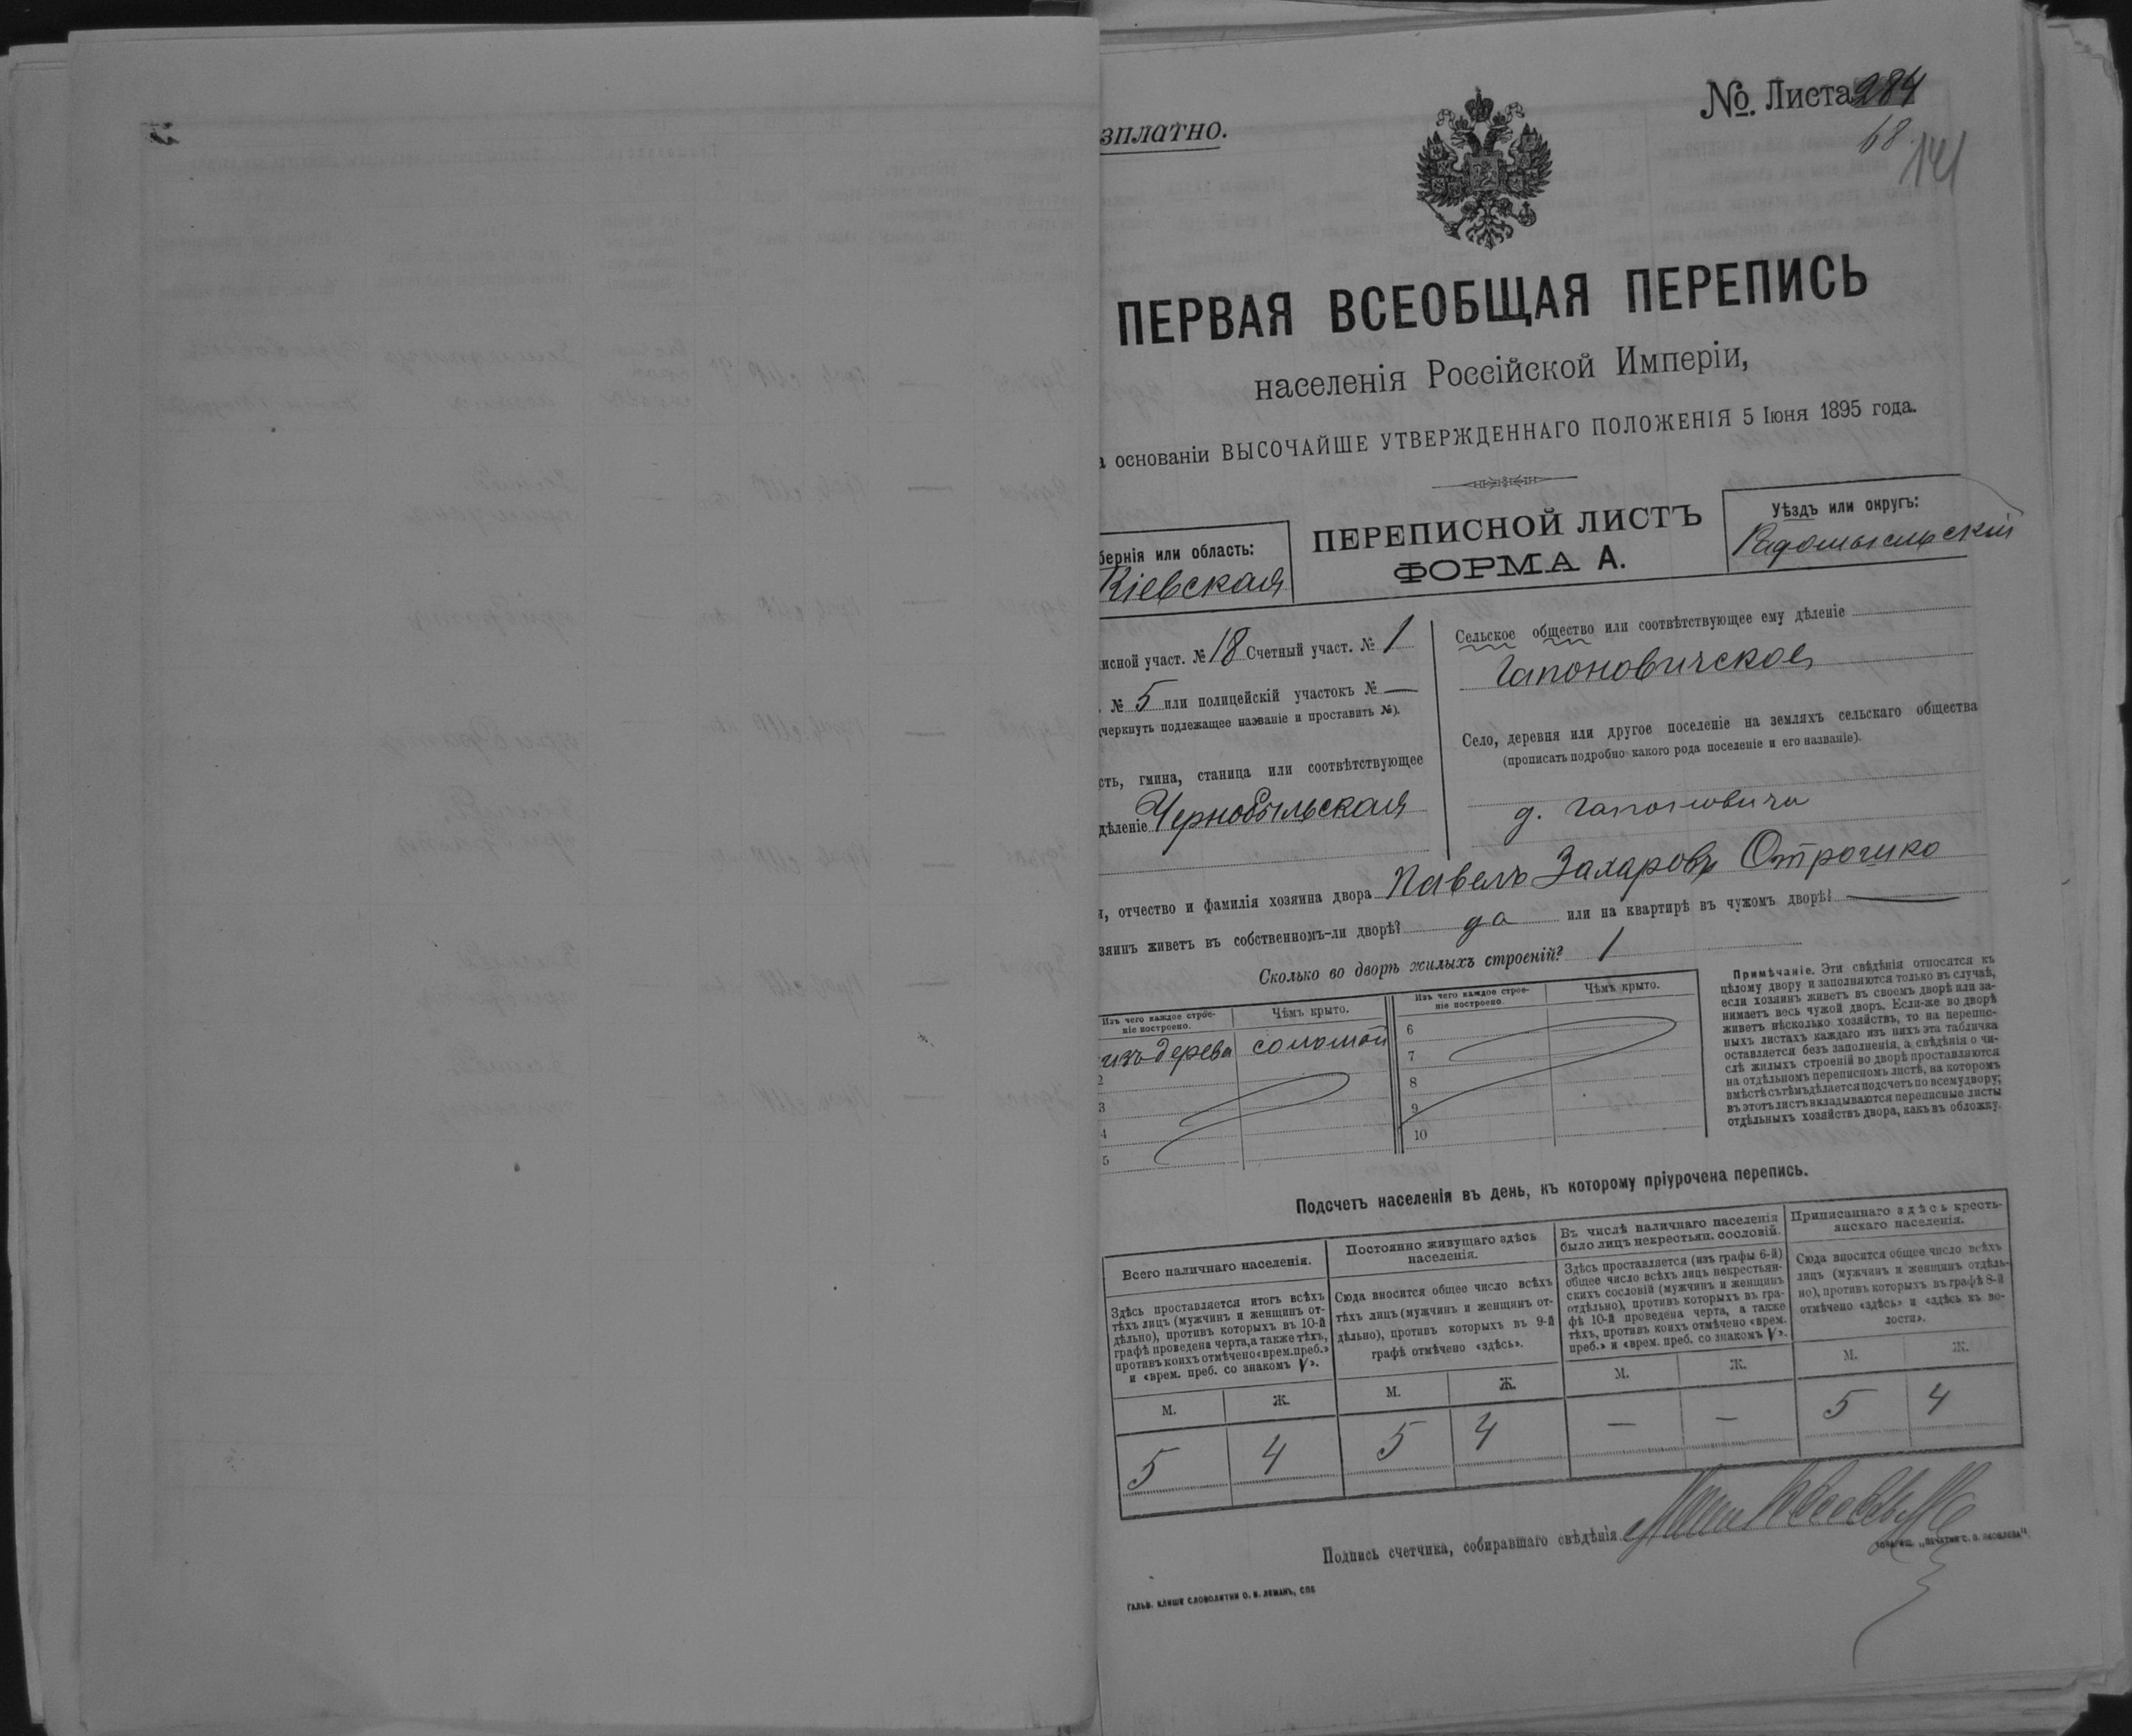 зплатно.
№. Листа 284
68.
141
ПЕРВАЯ ВСЕОБЩАЯ ПЕРЕПИСЬ
населенія Россійской Имперіи,
а основаніи ВЫСОЧАЙШЕ УТВЕРЖДЕННАГО ПОЛОЖЕНІЯ 5 Іюня 1895 года.
бернія или область:
Кіевская
ПЕРЕПИСНОЙ ЛИСТЪ
ФОРМА А.
Уѣздъ или округъ:
Радомысльскій
исной участ. № 18 Счетный участ. № 1
. № 5 или полицейскій участокъ № —
черкнуть подлежащее названіе и проставить №).
сть, гмина, станица или соотвѣтствующее
дѣленіе Чернобыльская
Сельское общество или соотвѣтствующее ему дѣленіе
Гапоновичское
Село, деревня или другое поселеніе на земляхъ сельскаго общества
(прописать подробно какого рода поселеніе и его названіе).
д. Гапоновичи
я, отчество и фамилія хозяина двора Павелъ Захаровъ Отрошко
зяинъ живетъ въ собственномъ-ли дворѣ? да или на квартирѣ въ чужомъ дворѣ? —
Сколько во дворѣ жилыхъ строеній? 1
Изъ чего каждое строе-
ніе построено.
Чѣмъ крыто.
изъ дерева соломой
2
3
4
5
Изъ чего каждое строе-
ніе построено.
Чѣмъ крыто.
6
7
8
9
10
Примѣчаніе. Эти свѣдѣнія относятся къ
цѣлому двору и заполняются только въ случаѣ,
если хозяинъ живетъ въ своемъ дворѣ или за-
нимаетъ весь чужой дворъ. Если-же во дворѣ
живетъ нѣсколько хозяйствъ, то на перепис-
ныхъ листахъ каждаго изъ нихъ эта табличка
оставляется безъ заполненія, а свѣдѣнія о чи-
слѣ жилыхъ строеній во дворѣ проставляются
на отдѣльномъ переписномъ листѣ, на которомъ
вмѣстѣ съ тѣмъ дѣлается подсчетъ по всему двору;
въ этотъ листъ вкладываются переписные листы
отдѣльныхъ хозяйствъ двора, какъ въ обложку.
Подсчетъ населенія въ день, къ которому пріурочена перепись.
Всего наличнаго населенія.
Здѣсь проставляется итогъ всѣхъ
тѣхъ лицъ (мужчинъ и женщинъ от-
дѣльно), противъ которыхъ въ 10-й
графѣ проведена черта, а также тѣхъ,
противъ коихъ отмѣчено «врем. преб.»
и «врем. преб. со знакомъ V».
М. Ж.
5 4
Постоянно живущаго здѣсь
населенія.
Сюда вносится общее число всѣхъ
тѣхъ лицъ (мужчинъ и женщинъ от-
дѣльно), противъ которыхъ въ 9-й
графѣ отмѣчено «здѣсь».
М. Ж.
5 4
Въ числѣ наличнаго населенія
было лицъ некрестьян. сословій.
Здѣсь проставляется (изъ графы 6-й)
общее число всѣхъ лицъ некрестьян-
скихъ сословій (мужчинъ и женщинъ
отдѣльно), противъ которыхъ въ гра-
фѣ 10-й проведена черта, а также
тѣхъ, противъ коихъ отмѣчено «врем.
преб.» и «врем. преб. со знакомъ V».
М. Ж.
— —
Приписаннаго здѣсь кресть-
янскаго населенія.
Сюда вносится общее число всѣхъ
лицъ (мужчинъ и женщинъ отдѣль-
но), противъ которыхъ въ графѣ 8-й
отмѣчено «здѣсь» и «здѣсь къ во-
лости».
М. Ж.
5 4
Подпись счетчика, собиравшаго свѣдѣнія
ГАЛЬВ. КЛИШЕ СЛОВОЛИТНИ О. И. ЛЕМАНЪ, СПБ
ТОВАРИЩ. „ПЕЧАТНЯ С. П. ЯКОВЛЕВА".